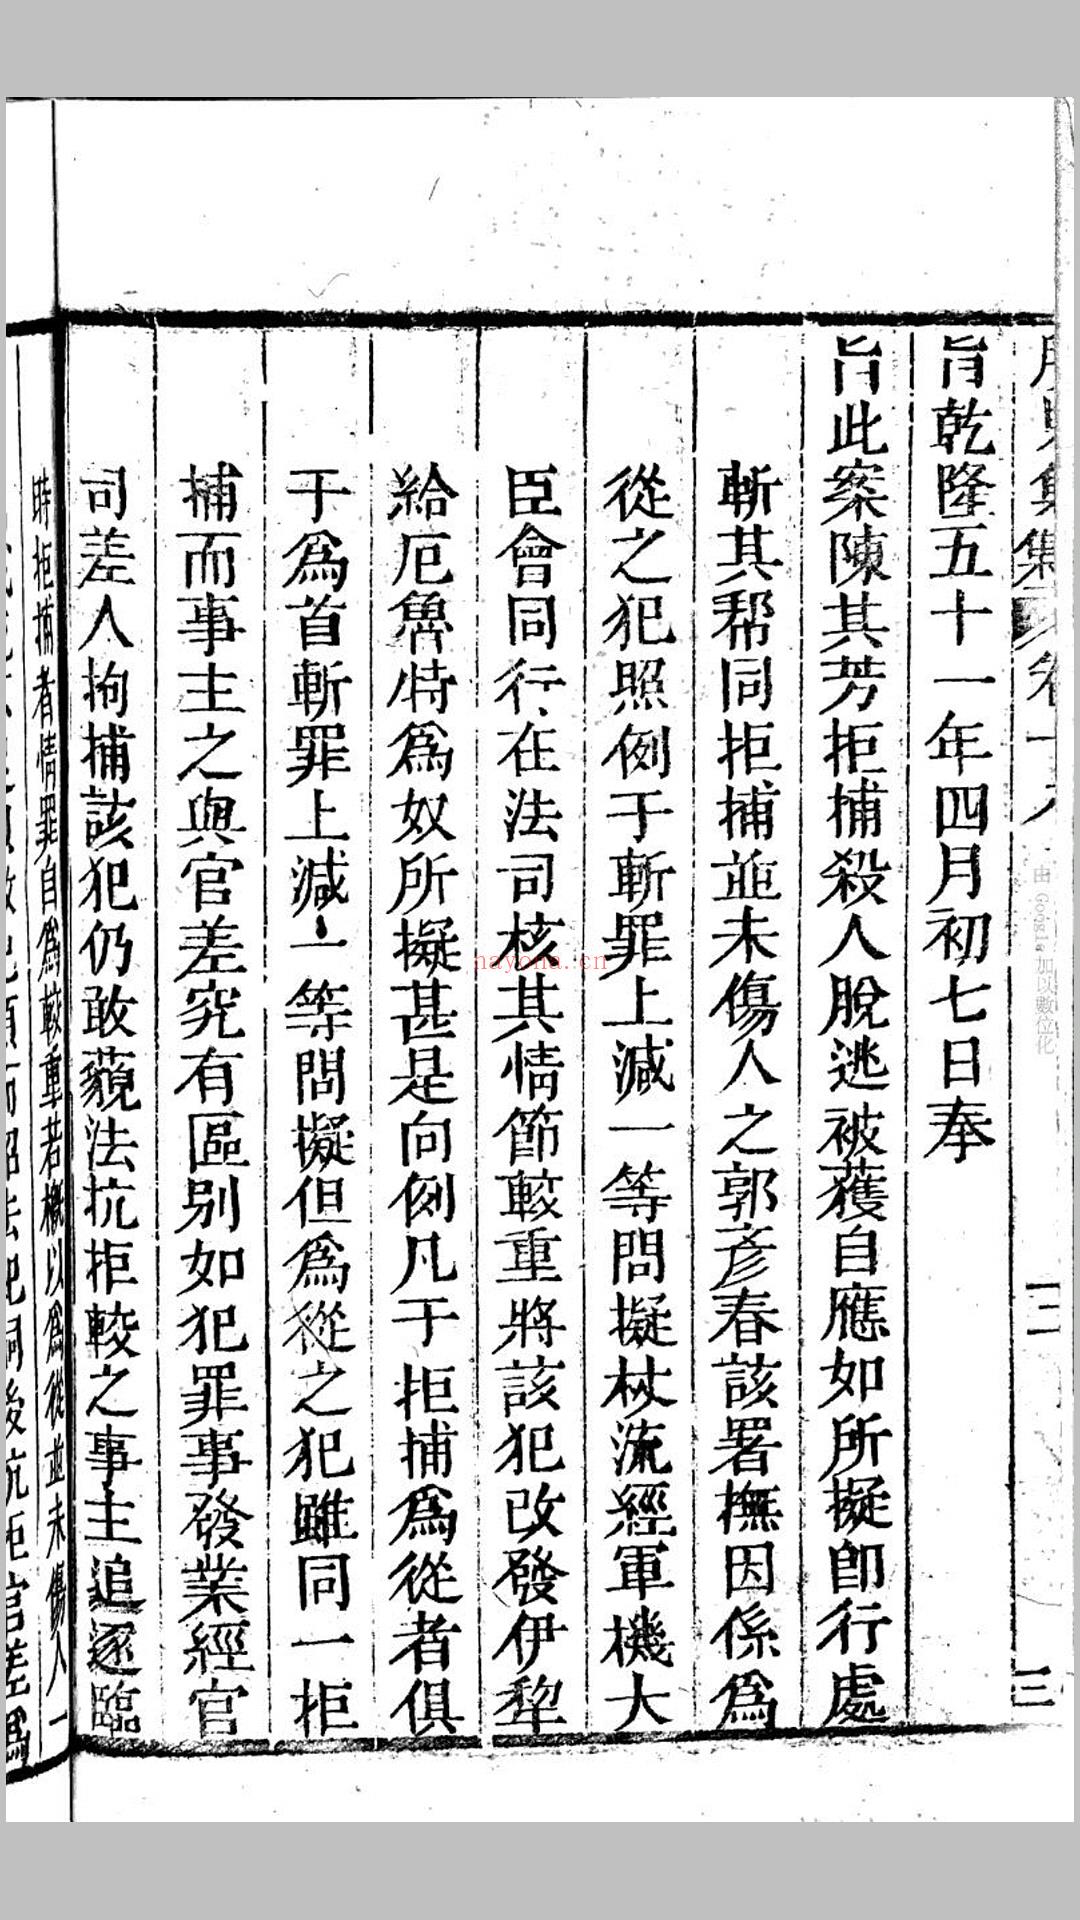 集卷十八
三
三
旨乾隆五十一年四月初七日奉
旨此案陳其芳拒捕殺人脫逃被獲自應如所擬即行處
斬其帮同拒捕並未傷人之郭彥春該署撫因係爲
從之犯照例于斬罪上減一等問擬杖流經軍機大
臣會同行在法司核其情節較重將該犯改發伊犂
給厄魯特爲奴所擬甚是向例凡于拒捕爲從者俱
于爲首斬罪上減一等問擬但爲從之犯雖同一拒
捕而事主之與官差究有區别如犯罪事發業經官
司差人拘捕該犯仍敢藐法抗拒較之事主追逐臨
時拒捕者情罪自爲較重若概以爲從並未傷人一
後抗拒官差爲
由 Google 加以數位化
nayona.cn